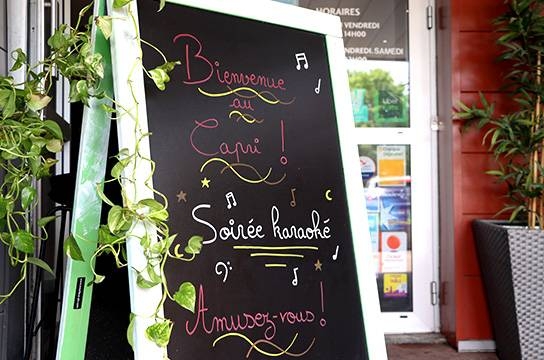 Bienvenue
au
Capri !
Soirée karaoké
Amusez-vous !
HORAIRES
VENDREDI
14H00
VENDREDI.SAMEDI